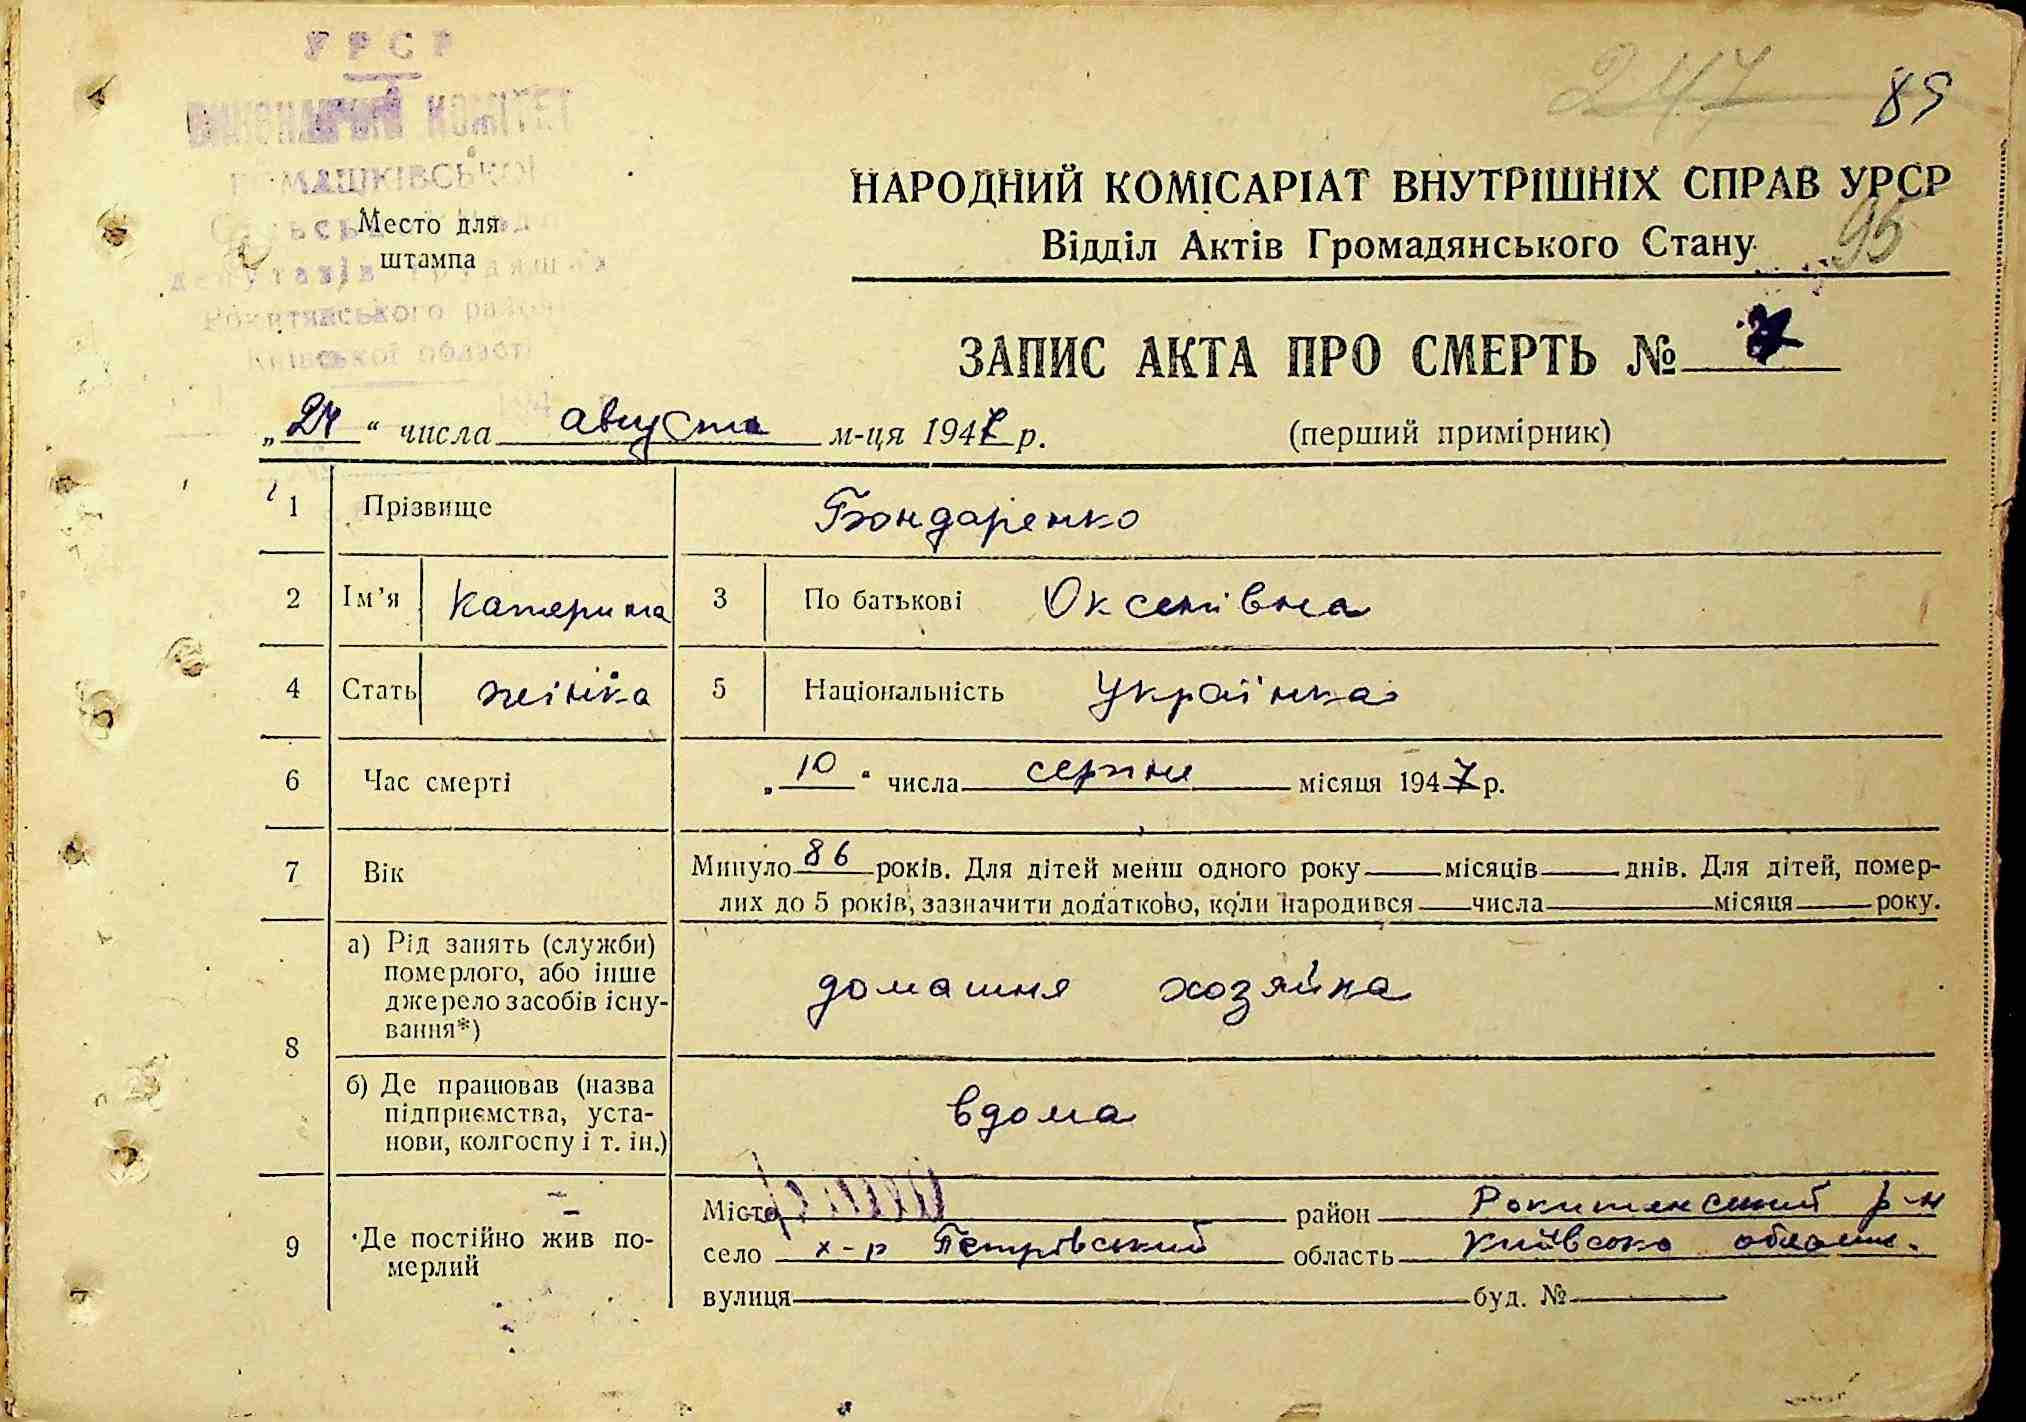 УРСР
ВИКОНАВЧИЙ КОМІТЕТ
РОМАШКІВСЬКОЇ
Сільської Ради
депутатів трудящих
Рокитянського району
Київської області
Место для
штампа
247
89
НАРОДНИЙ КОМІСАРІАТ ВНУТРІШНІХ СПРАВ УРСР
Відділ Актів Громадянського Стану
95
ЗАПИС АКТА ПРО СМЕРТЬ №
„24“ числа августа м-ця 1947 р.
(перший примірник)
1 Прізвище Бондаренко
2 Ім’я Катерина 3 По батькові Оксентівна
4 Стать жінка 5 Національність Українка
6 Час смерті „10“ числа серпня місяця 1947 р.
7 Вік Минуло 86 років. Для дітей менш одного року місяців днів. Для дітей, помер-
лих до 5 років, зазначити додатково, коли народився числа місяця року.
8 а) Рід занять (служби)
померлого, або інше
джерело засобів існу-
вання*)
домашня хозяйка
б) Де працював (назва
підприємства, уста-
нови, колгоспу і т. ін.)
вдома
9 Де постійно жив по-
мерлий
Місто район Рокитянський р-н
село х-р Петрівський область Київсько області.
вулиця буд. №